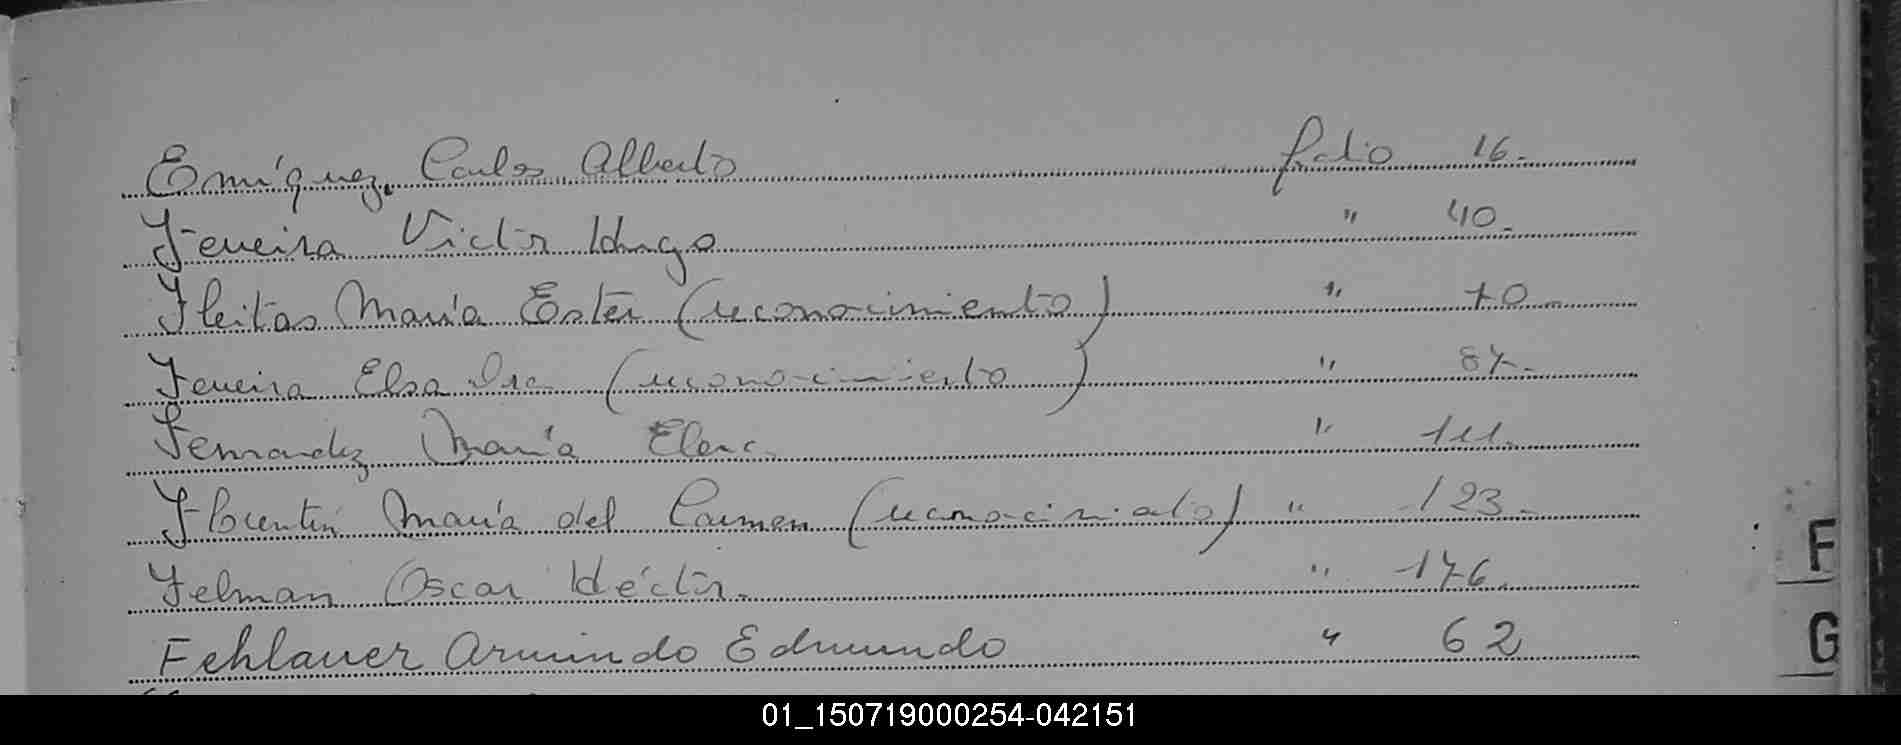 Enríquez, Carlos Alberto folio 16.
Ferreira Victor Hugo " 40.
Fleitas María Ester (reconocimiento) " 70.
Ferreira Elsa Ira (reconocimiento) " 87.
Fernandez María Elena " 111.
Florentín María del Carmen (reconocimiento) " 123.
Felman Oscar Héctor. " 176.
Fehlauer Armindo Edmundo " 62
F
G
01_150719000254-042151